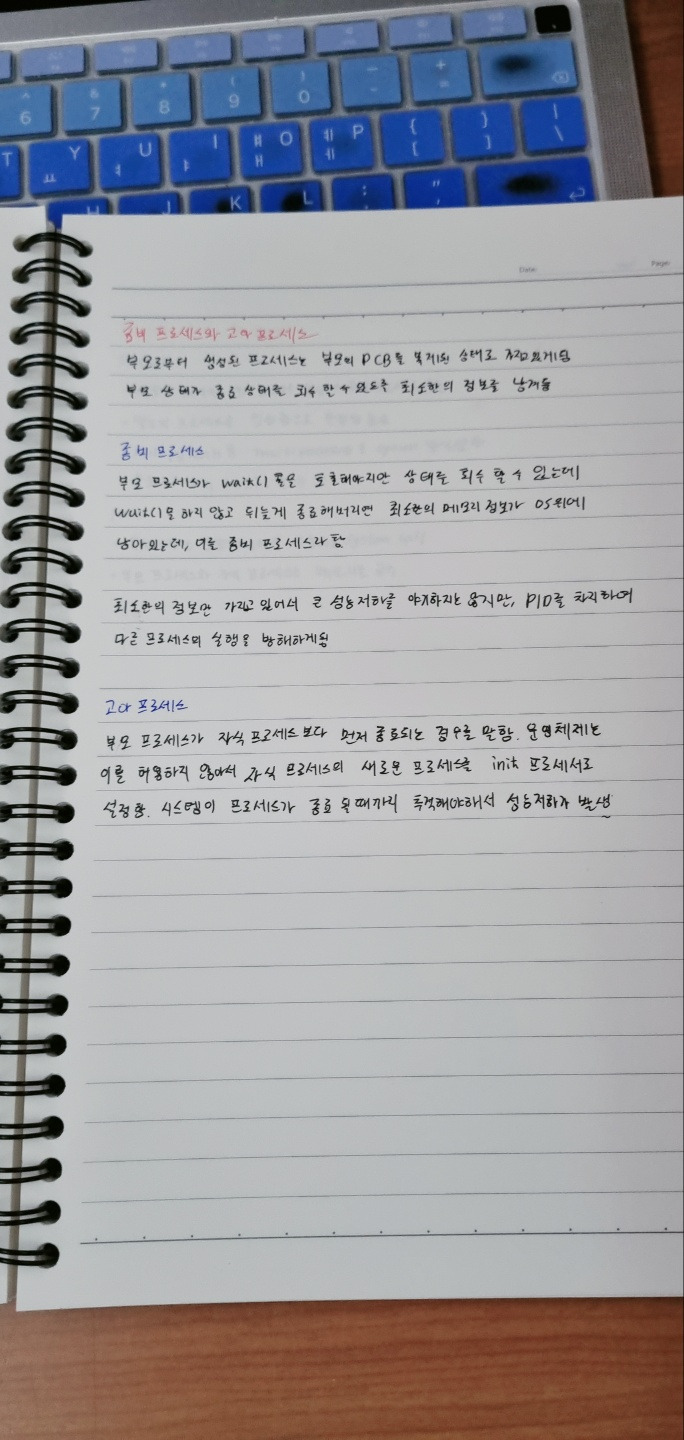 ^ & * ( ) - +
6 7 8 9 0 - =
T Y U I O P { } |
ㅛ ㅕ ㅑ ㅐ ㅔ [ ] \
H J K L : "
; '
Date: Page:
좀비 프로세스와 고아 프로세스
부모로부터 생성된 프로세스는 부모의 PCB를 복제된 상태로
부모 상태가 종료 상태를 회수 할 수 있도록 최소한의 정보를 남겨둠
좀비 프로세스
부모 프로세스가 wait() 콜은 호출해야지만 상태를 회수 할 수 있는데
wait()을 하지 않고 뒤늦게 종료해버리면 최소한의 메모리 정보가 OS위에
남아있는데, 이를 좀비 프로세스라 함
최소한의 정보만 가지고 있어서 큰 성능저하를 야기하지는 않지만, PID를 차지하여
다른 프로세스의 실행을 방해하게됨
고아 프로세스
부모 프로세스가 자식 프로세스보다 먼저 종료되는 경우를 말함. 운영체제는
이를 허용하지 않아서 자식 프로세스의 새로운 프로세스를 init 프로세서로
설정함. 시스템이 프로세스가 종료 될때까지 추적해야해서 성능저하가 발생